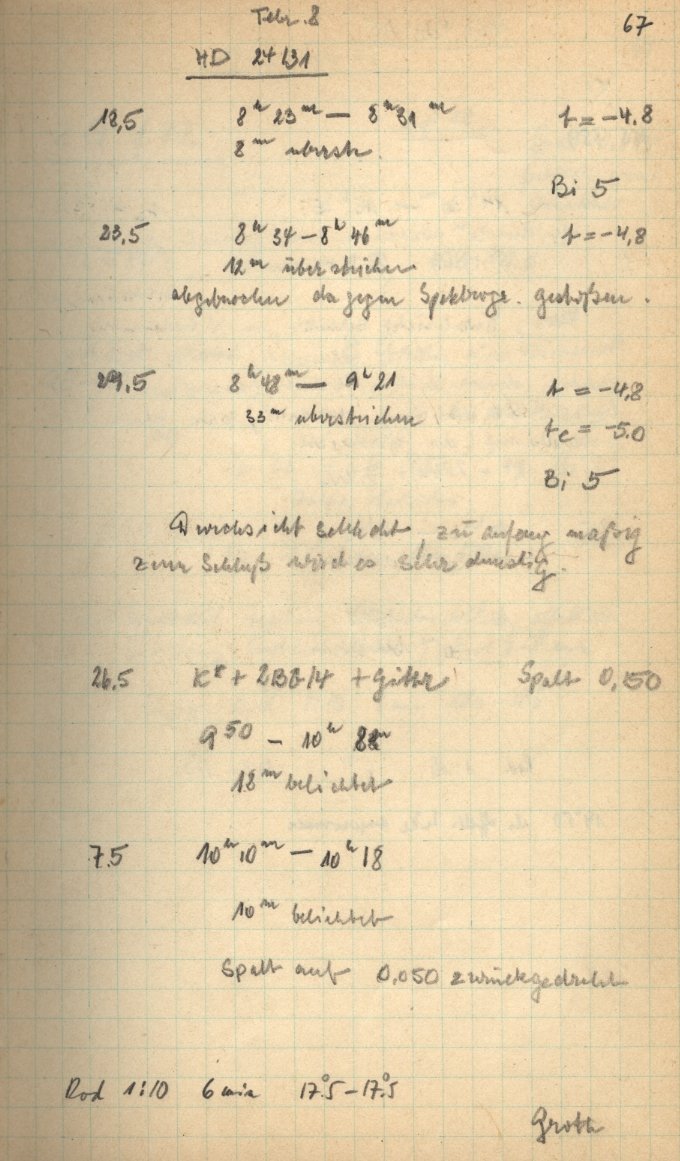 Febr. 8 67
HD 24131
18,5 8ʰ 23ᵐ — 8ʰ 31ᵐ t = -4.8
8ᵐ überstr.
Bi 5
23,5 8ʰ 34 - 8ʰ 46ᵐ t = -4,8
12ᵐ überstrichen
abgebrochen da gegen Spektrogr. gestoßen.
29,5 8ʰ 48ᵐ — 9ʰ 21 t = -4,8
33ᵐ überstrichen tc = -5.0
Bi 5
Durchsicht schlecht, zu anfang mäßig
zum Schluß wird es sehr dunstig.
26,5 + Gitter Spalt 0,150
9 50 - 10ʰ
18ᵐ belichtet
7.5 10ʰ 10ᵐ — 10ʰ 18
10ᵐ belichtet
Spalt auf 0,050 zurückgedreht
Rod 1:10 6 min 17.°5 - 17.°5
Groth